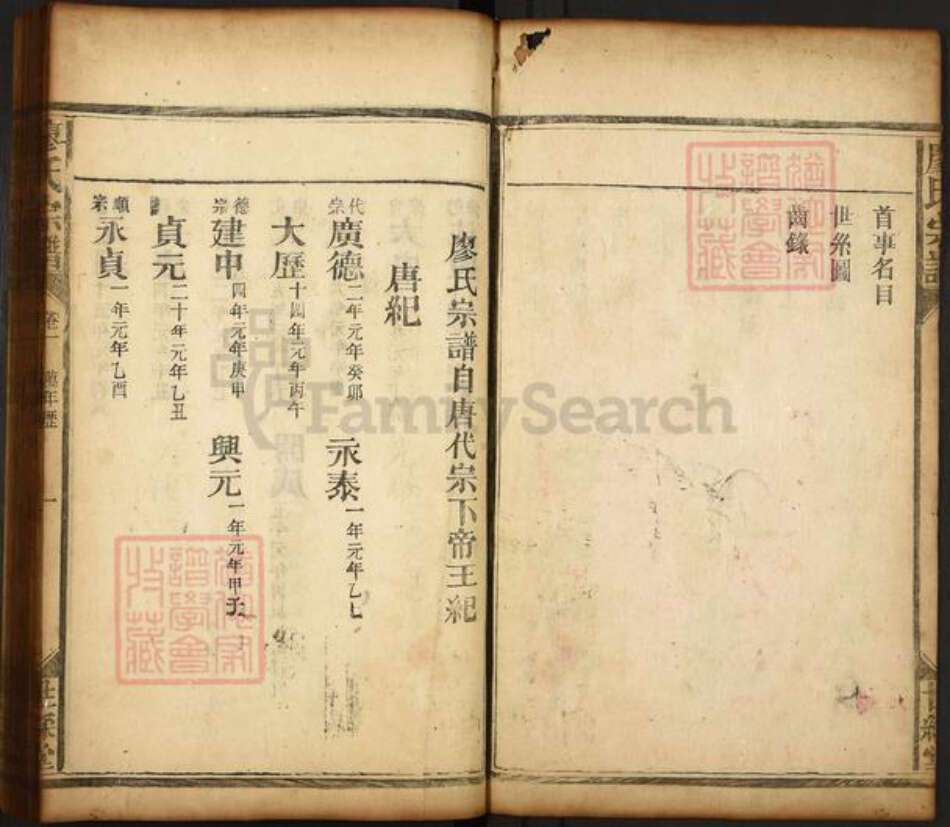 首事名目
世系圖
齒錄
廖氏宗譜自唐代宗下帝王紀
唐紀
代宗 廣德 二年元年癸卯 永泰 一年元年乙七
大歷 十四年元年丙午
德宗 建中 四年元年庚申 興元 一年元年甲子
貞元 二十年元年乙丑
順宗 永貞 一年元年乙酉
廖氏宗譜
卷一
一
FamilySearch